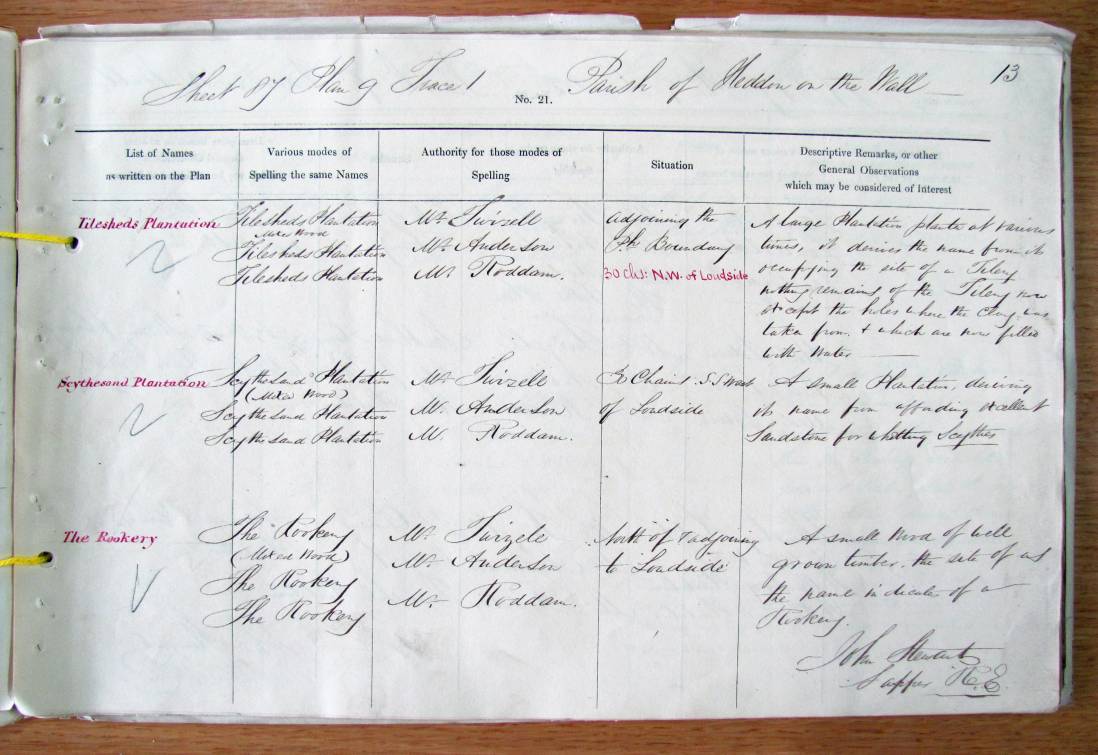 13
Sheet 87 Plan 9 Trace 1 Parish of Heddon on the Wall
No. 21.
List of Names
as written on the Plan
Various modes of
Spelling the same Names
Authority for those modes of
Spelling
Situation
Descriptive Remarks, or other
General Observations
which may be considered of Interest
Tilesheds Plantation
Tilesheds Plantation
Mixed Wood
Tilesheds Plantation
Tilesheds Plantation
Mr. Twizell
Mr. Anderson
Mr. Roddam.
adjoining the
Ph. Boundary
30 chs: N.W. of Loudside
A large Plantation plante at various
times, it derives the name from its
occupying the site of a Tilery
nothing remains of the Tilery now
except the holes where the Clay was
taken from. & which are now filled
with Water
Scythesand Plantation
Scythe sand Plantation
(Mixed Wood)
Scythe sand Plantation
Scythe sand Plantation
Mr. Twizell
Mr. Anderson
Mr. Roddam.
Chains S.S West
of Loudside
A small Plantation, deriving
its name from affording excellent
Sandstone for whetting Scythes
The Rookery
The Rookery
(Mixed Wood)
The Rookery
The Rookery
Mr. Twizele
Mr. Anderson
Mr. Roddam.
North of & adjoining
to Loudside
A small Wood of well
grown timber. the site of as
the name indicates of a
Rookery.
John Stewart
Sapper R.E.